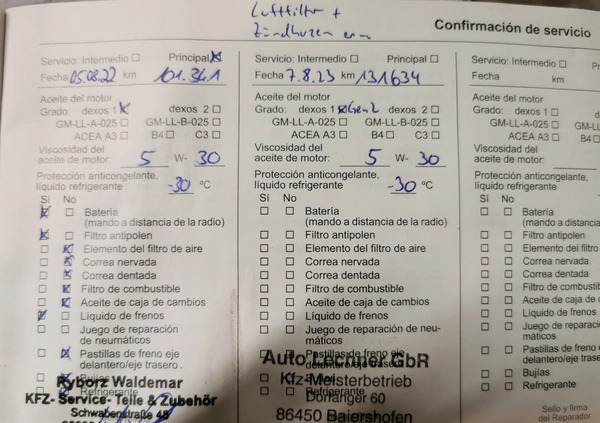 Luftfilter +
Zündkerzen
Confirmación de servicio
Servicio: Intermedio ☐ Principal ☒
Fecha 05.08.22 km 101.341
Aceite del motor
Grado: dexos 1 ☒ dexos 2 ☐
GM-LL-A-025 ☐ GM-LL-B-025 ☐
ACEA A3 ☐ B4 ☐ C3 ☐
Viscosidad del
aceite de motor: 5 W- 30
Protección anticongelante,
líquido refrigerante -30 °C
Sí No
☒ ☐ Batería
(mando a distancia de la radio)
☒ ☐ Filtro antipolen
☐ ☒ Elemento del filtro de aire
☐ ☒ Correa nervada
☐ ☒ Correa dentada
☐ ☒ Filtro de combustible
☐ ☒ Aceite de caja de cambios
☒ ☐ Líquido de frenos
☐ ☐ Juego de reparación
de neumáticos
☐ ☒ Pastillas de freno eje
delantero/eje trasero
Bujías
Refrigerante
Ryborz Waldemar
KFZ- Service- Teile & Zubehör
Schwabenstraße 48
Servicio: Intermedio ☐ Principal ☐
Fecha 7.8.23 km 131634
Aceite del motor
Grado: dexos 1 ☒ Gen2 dexos 2 ☐
GM-LL-A-025 ☐ GM-LL-B-025 ☐
ACEA A3 ☐ B4 ☐ C3 ☐
Viscosidad del
aceite de motor: 5 W- 30
Protección anticongelante,
líquido refrigerante -30 °C
Sí No
☐ ☐ Batería
(mando a distancia de la radio)
☐ ☐ Filtro antipolen
☐ ☐ Elemento del filtro de aire
☐ ☐ Correa nervada
☐ ☐ Correa dentada
☐ ☐ Filtro de combustible
☐ ☐ Aceite de caja de cambios
☐ ☐ Líquido de frenos
☐ ☐ Juego de reparación de neu-
máticos
☐ ☐ Pastillas de freno eje
delantero/eje trasero
Auto Lechner GbR
Kfz-Meisterbetrieb
Dorfanger 60
86450 Baiershofen
Servicio: Intermedio ☐
Fecha
Aceite del motor
Grado: dexos 1 ☐
GM-LL-A-025 ☐
ACEA A3 ☐
Viscosidad del
aceite de motor:
Protección anticongelante,
líquido refrigerante
Sí No
☐ ☐ Batería
(mando a distan
☐ ☐ Filtro antipolen
☐ ☐ Elemento del filtro
☐ ☐ Correa nervada
☐ ☐ Correa dentada
☐ ☐ Filtro de combustible
☐ ☐ Aceite de caja de c
☐ ☐ Líquido de frenos
☐ ☐ Juego de reparación
de neumáticos
☐ ☐ Pastillas de freno e
delantero/eje trase
☐ ☐ Bujías
☐ ☐ Refrigerante
Sello y firma
del Reparador